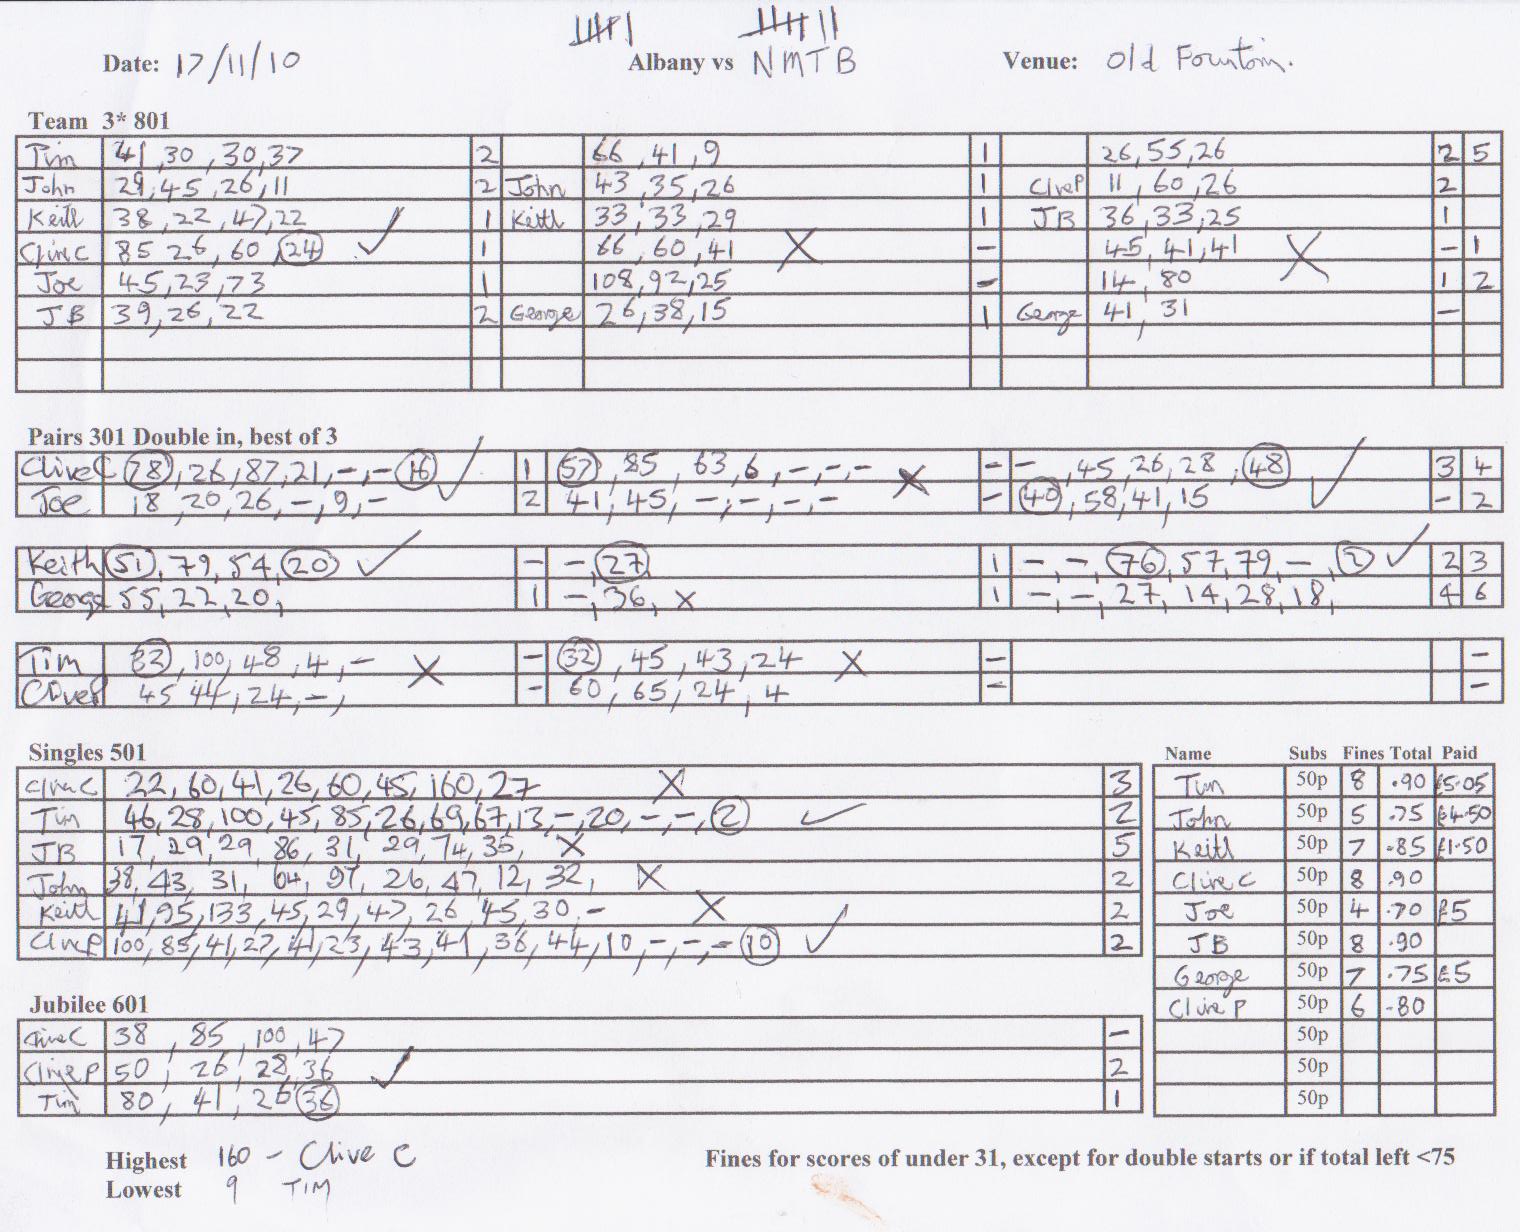 Date: 17/11/10 Albany vs NMTB Venue: Old Fountain.
Team 3* 801
Tim 41, 30, 30, 37 2 66, 41, 9 1 26, 55, 26 2 5
John 29, 45, 26, 11 2 John 43, 35, 26 1 Clive P 11, 60, 26 2
Keith 38, 22, 47, 22 1 Keith 33, 33, 29 1 JB 36, 33, 25 1
Clive C 85 26, 60, 24 1 66, 60, 41 X - 45, 41, 41 X - 1
Joe 45, 23, 73 1 108, 92, 25 - 14, 80 1 2
JB 39, 26, 22 2 George 26, 38, 15 1 George 41, 31 -
Pairs 301 Double in, best of 3
Clive C 28, 26, 87, 21, -, - 16 1 57, 85, 63, 6, -, -, - X - -, 45, 26, 28, 48 3 4
Joe 18, 20, 26, -, 9, - 2 41, 45, -, -, -, - - 40, 58, 41, 15 - 2
Keith 51, 79, 54, 20 - -, 27 1 -, -, 76, 57, 79, -, 2 2 3
George 55, 22, 20, 1 -, 36, X 1 -, -, 27, 14, 28, 18, 4 6
Tim 32, 100, 48, 4, - X - 32, 45, 43, 24 X - -
Clive P 45 44, 24, -, - 60, 65, 24, 4 - -
Singles 501
Clive C 22, 60, 41, 26, 60, 45, 160, 27 X 3
Tim 46, 28, 100, 45, 85, 26, 69, 67, 13, -, 20, -, -, 2 2
JB 17, 29, 29, 86, 31, 29, 74, 35, X 5
John 38, 43, 31, 64, 97, 26, 47, 12, 32, X 2
Keith 41, 95, 133, 45, 29, 47, 26, 45, 30, - X 2
Clive P 100, 85, 41, 27, 41, 23, 43, 41, 36, 44, 10, -, -, - 10 2
Name Subs Fines Total Paid
Tim 50p 8 .90 £5.05
John 50p 5 .75 £4.50
Keith 50p 7 .85 £1.50
Clive C 50p 8 .90
Joe 50p 4 .70 £5
JB 50p 8 .90
George 50p 7 .75 £5
Clive P 50p 6 .80
50p
50p
50p
Jubilee 601
Clive C 38, 85, 100, 47 -
Clive P 50, 26, 28, 36 2
Tim 80, 41, 26 36 1
Highest 160 - Clive C
Lowest 9 TIM
Fines for scores of under 31, except for double starts or if total left <75